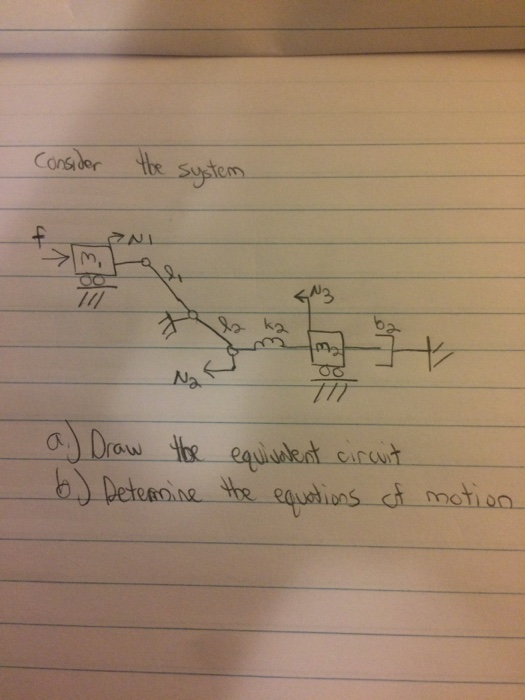 Consider the system
f
m1
N1
l1
N3
l2
k2
m2
b2
N2
a.) Draw the equivalent circuit
b.) Determine the equations of motion